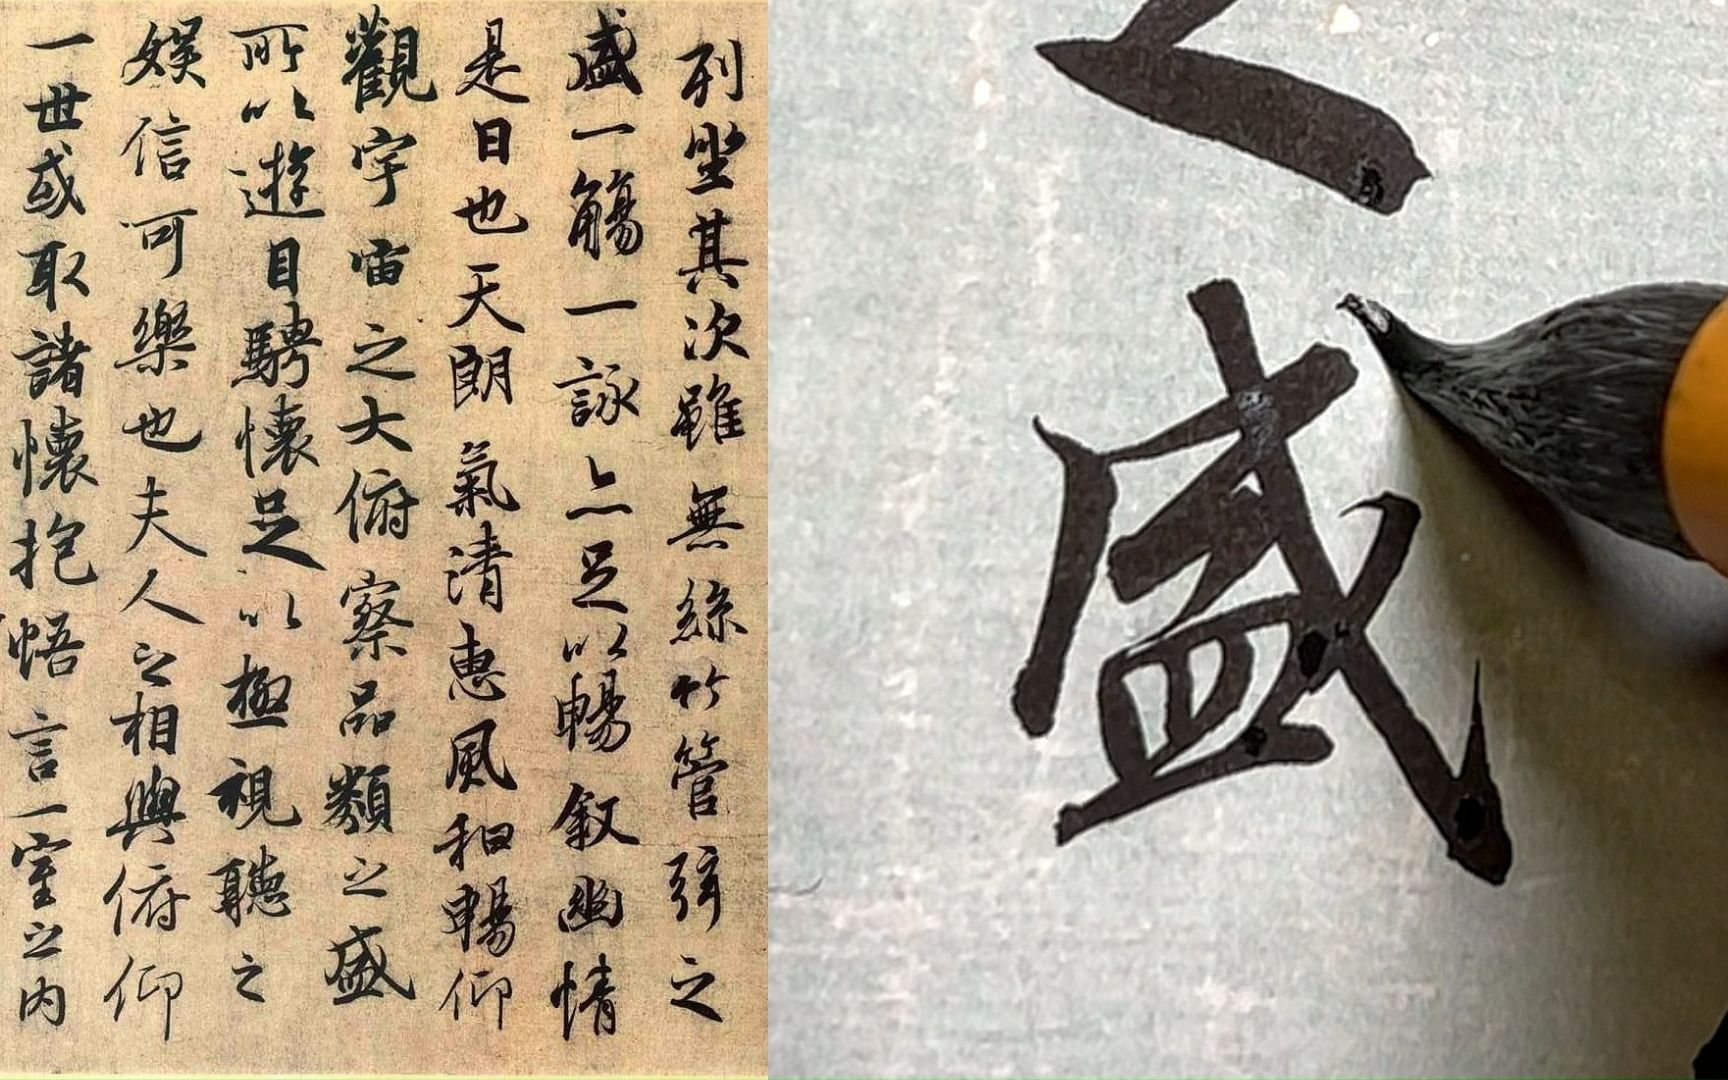 列坐其次雖無絲竹管弦之
盛一觴一詠亦足以暢叙幽情
是日也天朗氣清惠風和暢仰
觀宇宙之大俯察品類之盛
所以遊目騁懷足以極視聽之
娛信可樂也夫人之相與俯仰
一世或取諸懷抱悟言一室之内
盛